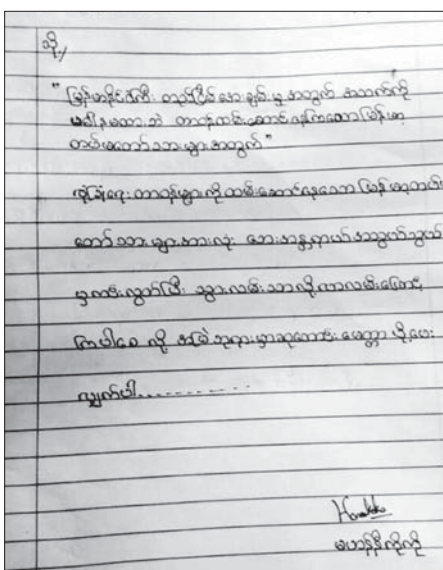 သို့/
" မြန်မာနိုင်ငံကြီး တည်ငြိမ်အေးချမ်းမှုအတွက် အသက်ကို
ပဓါနမထားဘဲ တာဝန်ထမ်းဆောင်နေကြသော မြန်မာ့
တပ်မတော်သားများအတွက် "
လုံခြုံရေးတာဝန်များကိုထမ်းဆောင်နေသော မြန်မာ့တပ်
တော်သားများအားလုံး ဘေးအန္တရာယ်အသွယ်သွယ်
မှကင်းလွတ်ပြီး သွားလမ်းသာလို့လာလမ်းဖြောင့်
ကြပါစေ လို့ အမြဲဘုရားမှာဆုတောင်း မေတ္တာ ပို့ပေး
လျှက်ပါ..........
မဟန်နီကိုကို